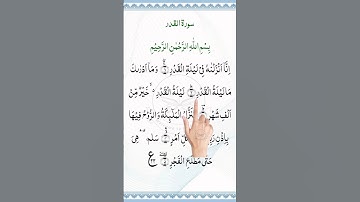 سورة القدر
بِسْمِ اللهِ الرَّحْمٰنِ الرَّحِيْمِ
اِنَّاۤ اَنْزَلْنٰهُ فِیْ لَیْلَةِ الْقَدْرِ ۝ وَمَاۤ اَدْرٰىكَ
مَا لَیْلَةُ الْقَدْرِ ۝ لَیْلَةُ الْقَدْرِ خَیْرٌ مِّنْ
اَلْفِ شَهْرٍ ۝ الْمَلٰٓىِٕكَةُ وَالرُّوْحُ فِیْهَا
بِاِذْنِ كُلِّ اَمْرٍ ۝ سَلٰمٌ هِیَ
حَتّٰى مَطْلَعِ الْفَجْرِ ۝